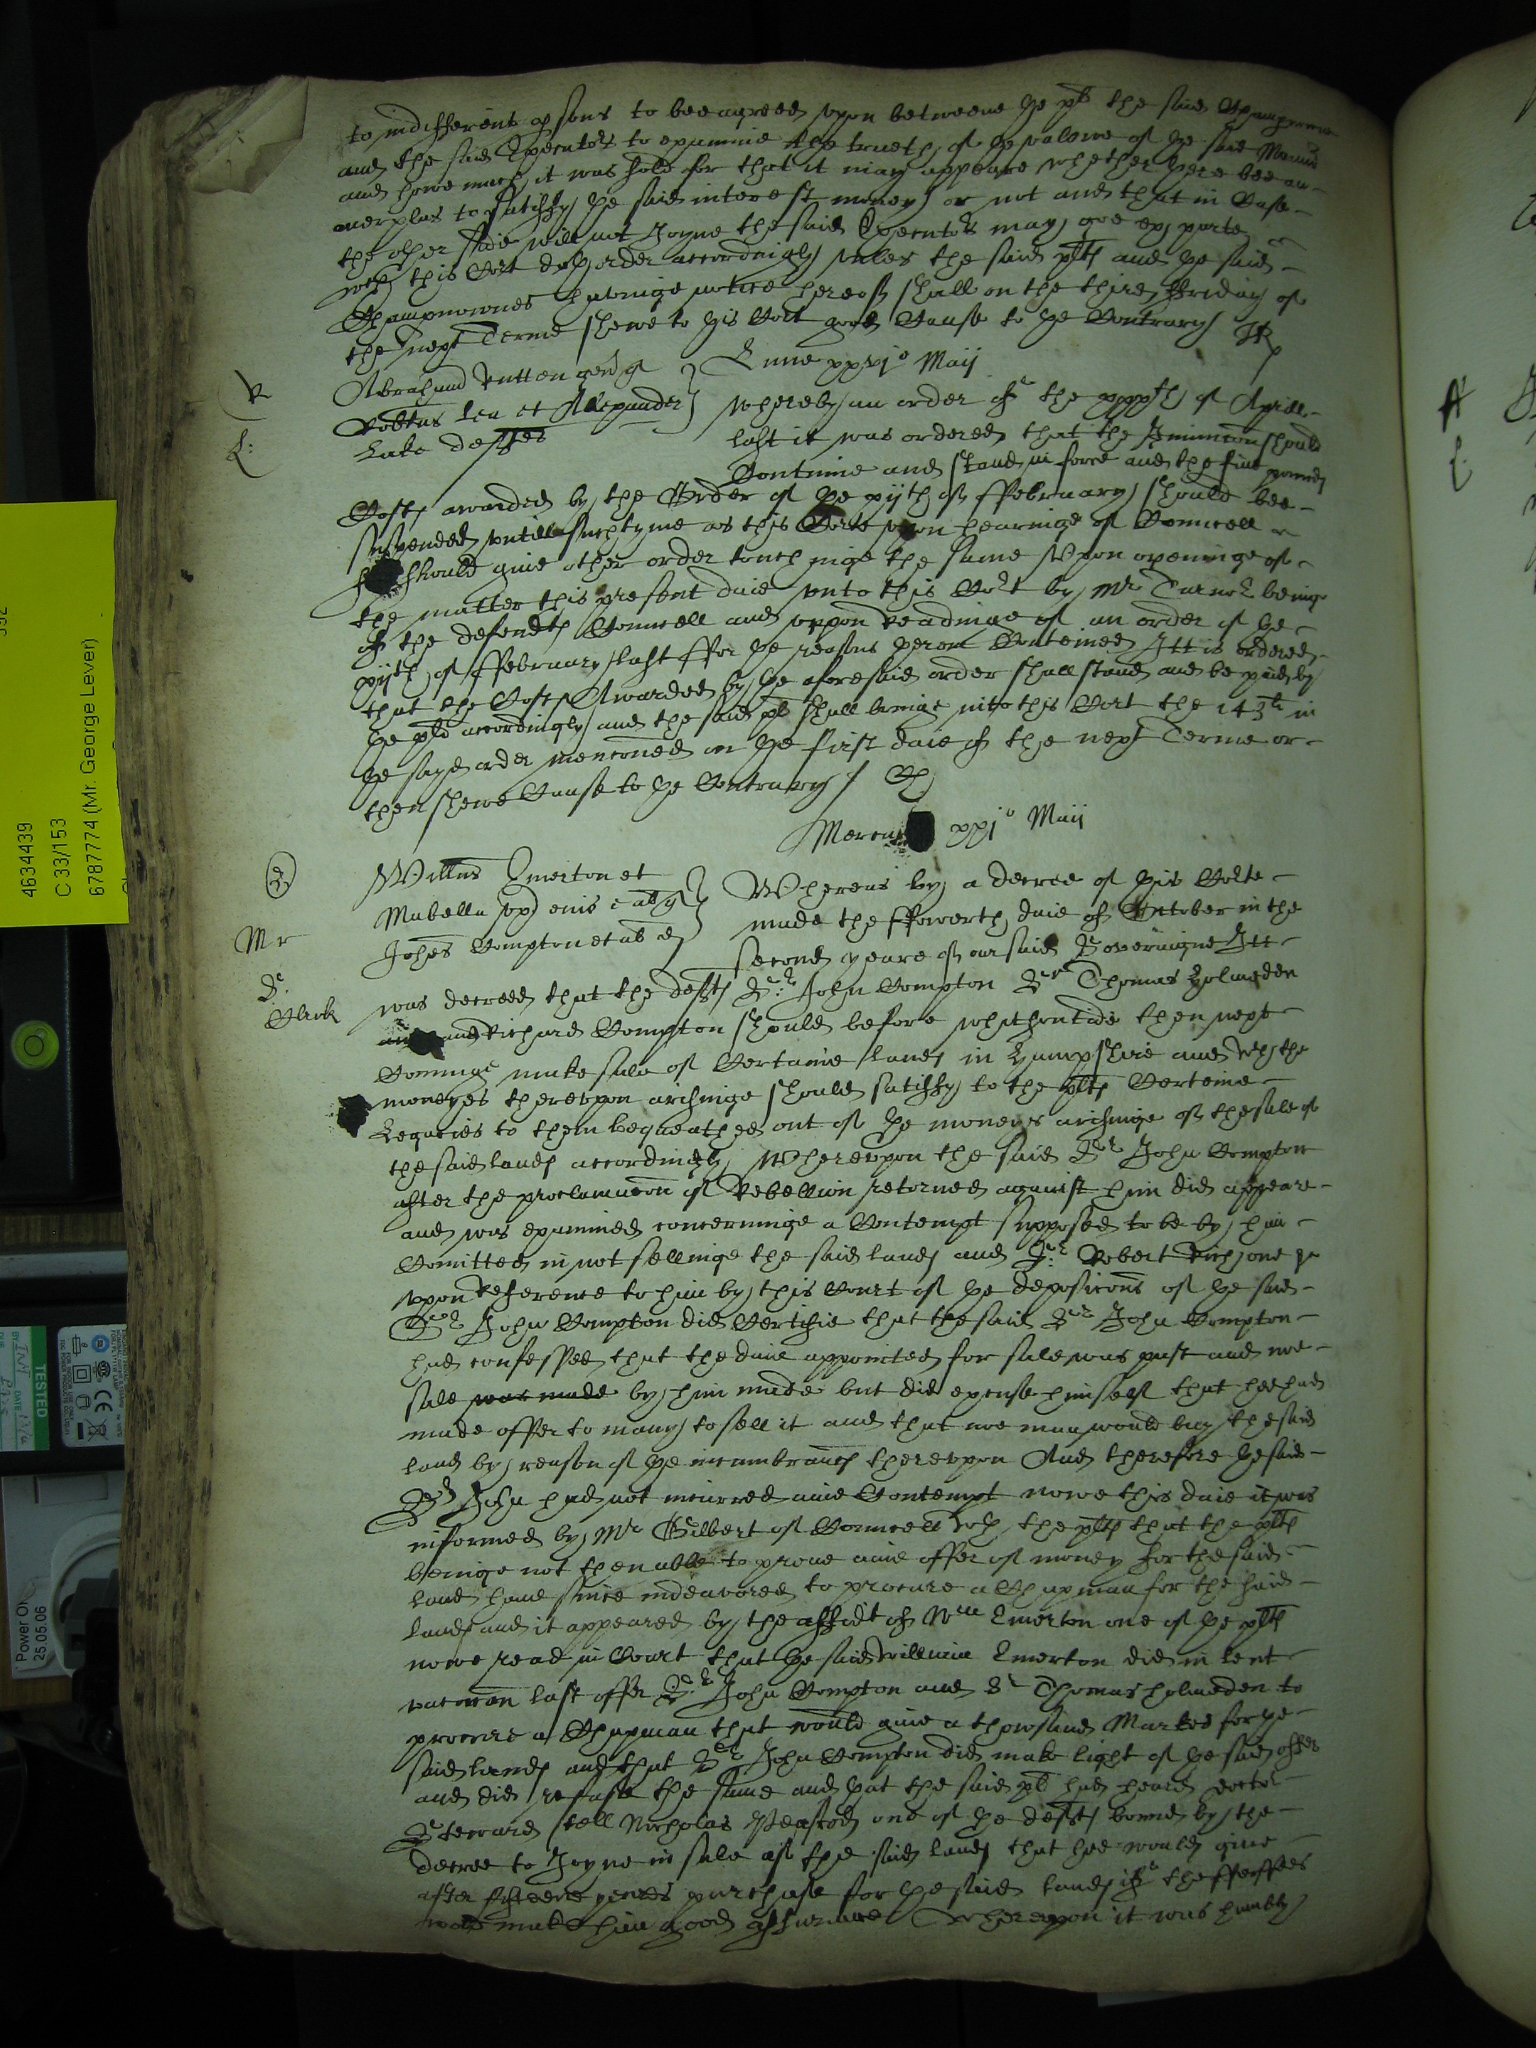 to indifferent psons to bee agreed vpon betweene ye plt the said Champernowne
and the said Executors to examine the trueth of ye valewe of ye said Mannor
and howe much it was sold for that it may appeare whether there bee an
overplus to satisfy ye said interest money or not and that in Case
the other side will not Joyne the said Executors may goe ex parte
wch this Cort doth order accordingly vnles the said plts and ye said
Champernownes havinge notice hereof shall on the third ffriday of
the next Terme shewe to this Cort good Cause to ye Contrary
R
L:
Abraham Rutten gen q
Lune xxvjo Maij
Robtus Lea et Alexander
Lake defftes
Whereby an order of the xxxth of Aprill
last it was ordered that the Iniunccon should
Continue and stand in force and the five pownd
Costs awarded by the Order of ye xijth of ffebruary should bee
suspended vntill such tyme as this Corte vpon hearinge of Councell
should give other order touchinge the same Vpon openinge of
the matter this present daie vnto this Cort by Mr Turnor beinge
of the defendts Councell and vppon readinge of an order of ye
xijth of ffebruary last ffor ye reasons herein Conteined Itt is ordered
that the Costs Awarded by ye aforesaid order shall stand and be paid by
ye plt accordingly and the said plt shall bringe into this Cort the 143li in
ye sayd order menconed on ye first daie of the next Terme or
then shewe Cause to ye Contrary
xxjo Maij
Mr
Sr
Clerk
Willms Emerton et
Mabella vx eius et al q
Johes Compton et al d
Whereas by a decree of this Corte
made the ffowerth daie of October in the
second yeare of our said Soveraigne Itt
was decreed that the deffts Sr John Compton Sr Thomas Holmeden
and Richard Compton should before Whitsontide then next
Cominge make sale of Certaine lands in Hampshire and wth the
moneyes therevpon arisinge should satisfy to the plts Certeine
Legacies to them bequeathed out of ye moneys arisinge of the sale of
the said lands accordingly Wherevpon the said Sr John Compton
after the proclamacon of Rebellion retorned against him did appeare
and was examined concerninge a Contempt supposed to be by him
Comitted in not sellinge the said lands and Sr Robert
vpon Reference to him by this Court of ye deposicons of ye said
Sr John Compton did Certifie that the said Sr John Compton
had confessed that the daie appointed for sale was past and noe
sale was made by him made but did excuse himself that hee had
made offer to many to sell it and that noe man would buy the said
land by reason of ye incumbrances therevpon And therefore ye said
Sr John had not incurred anie Contempt nowe this daie it was
informed by Mr Gilbert of Councell wth the plts that the plts
beinge not then able to prove anie offer of money for the said
land have since indeavored to procure a Chapman for the said
lands and it appeared by the affidt of Wm Emerton one of ye plts
nowe read in Court that ye said William Emerton did in lent
vacacon last offer Sr John Compton and Sr Thomas Holmeden to
procure a Chapman that would give a thowsand Markes for ye
said lands and that Sr John Compton did make light of ye said offer
and did refuse the same and yat the said plt had heard Doctor
Steward tell Nicholas Peascod one of ye deffts bound by the
decree to Joyne in sale of the said lands that hee would give
after fifteene yeeres purchase for ye said lands if the ffeoffees
would make him good assurance Wherevpon it was humbly
4634439
C 33/153
6787774 (Mr. George Lever)
TESTED
25.05.06